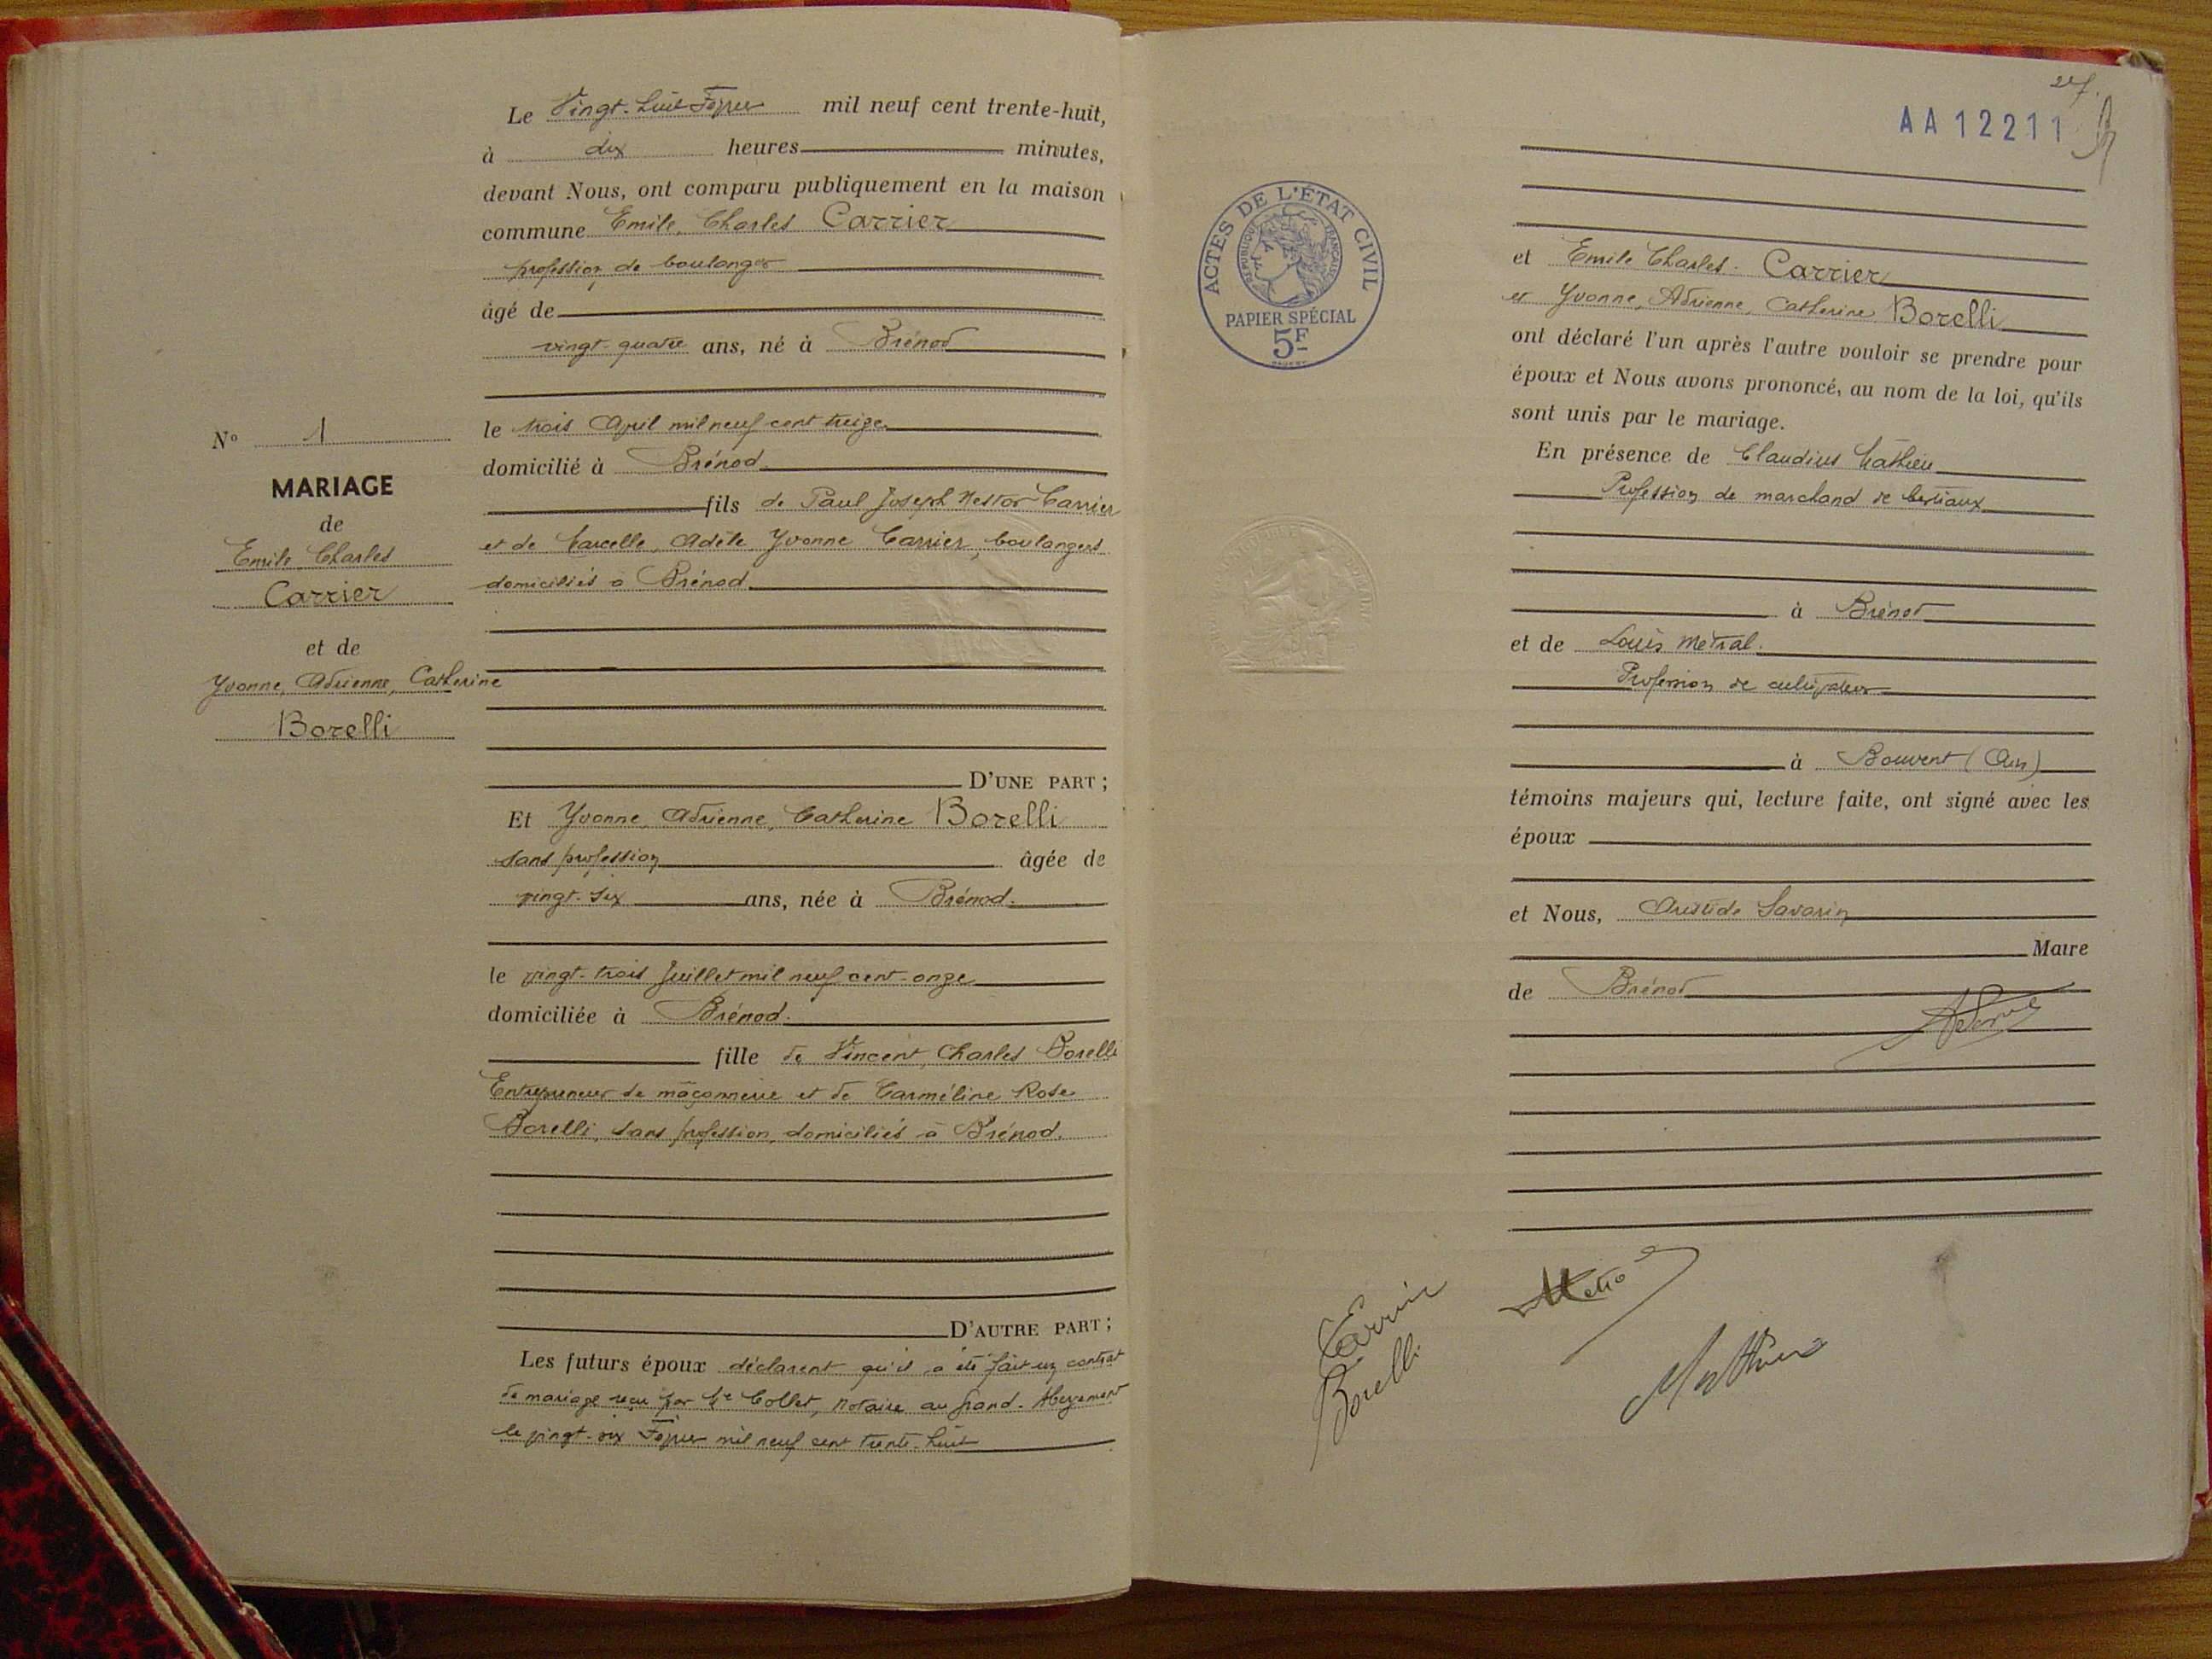 Le Vingt-huit Février mil neuf cent trente-huit,
à dix heures minutes,
devant Nous, ont comparu publiquement en la maison
commune Emile, Charles Carrier
profession de boulanger
âgé de
vingt-quatre ans, né à Brénod
le trois Avril mil neuf cent treize
domicilié à Brénod
fils de Paul Joseph Nestor Carrier
et de Marcelle, Adèle, Yvonne Carrier, boulangers
domiciliés à Brénod
N° 1
MARIAGE
de
Emile, Charles
Carrier
et de
Yvonne, Adrienne, Catherine
Borelli
D'UNE PART ;
Et Yvonne, Adrienne, Catherine Borelli
sans profession âgée de
vingt-six ans, née à Brénod.
le vingt-trois Juillet mil neuf cent-onze
domiciliée à Brénod.
fille de Vincent, Charles Borelli
Entrepreneur de maçonnerie et de Carméline Rose
Borelli, sans profession, domiciliés à Brénod.
D'AUTRE PART ;
Les futurs époux déclarent qu'il a été fait un contrat
de mariage reçu par Me Collet, notaire au Grand-Abergement
le vingt-six Février mil neuf cent trente-huit
27.
AA12211
ACTES DE L'ÉTAT CIVIL
RÉPUBLIQUE FRANÇAISE
PAPIER SPÉCIAL
5F
et Emile Charles. Carrier
et Yvonne, Adrienne, Catherine Borelli
ont déclaré l'un après l'autre vouloir se prendre pour
époux et Nous avons prononcé, au nom de la loi, qu'ils
sont unis par le mariage.
En présence de Claudius Mathieu
Profession de marchand de bestiaux
à Brénod
et de Louis Métral.
Profession de cultivateur
à Bouvent (Ain)
témoins majeurs qui, lecture faite, ont signé avec les
époux
et Nous, Aristide Savarin
Maire
de Brénod
Carrier
Borelli